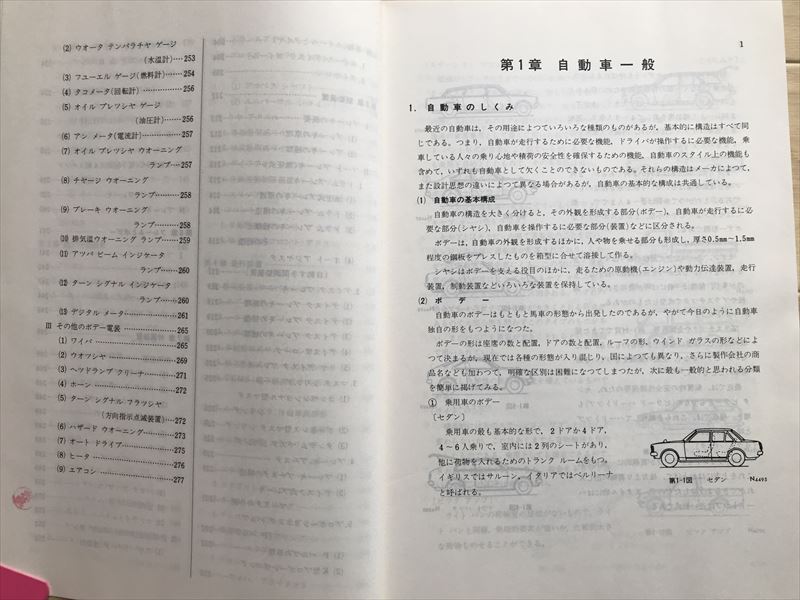 (2) ウオータ テンパラチヤ ゲージ
(水温計)……253
(3) フユーエル ゲージ(燃料計)……254
(4) タコメータ(回転計)……………256
(5) オイル プレツシヤ ゲージ
(油圧計)……256
(6) アン メータ(電流計)……………257
(7) オイル プレツシヤ ウオーニング
ランプ……257
(8) チヤージ ウオーニング
ランプ……………258
(9) ブレーキ ウオーニング
ランプ……………258
(10) 排気温ウオーニング ランプ……259
(11) アツパ ビーム インジケータ
ランプ……………260
(12) ターン シグナル インジケータ
ランプ……………260
(13) デジタル メータ…………………261
Ⅲ その他のボデー電装………………265
(1) ワイパ………………………………265
(2) ウオツシヤ…………………………269
(3) ヘツドランプ クリーナ…………271
(4) ホーン………………………………272
(5) ターン シグナル フラツシヤ
(方向指示点滅装置)……272
(6) ハザード ウオーニング…………273
(7) オート ドライブ…………………275
(8) ヒータ………………………………276
(9) エアコン……………………………277
1
第1章 自動車一般
1. 自動車のしくみ
最近の自動車は，その用途によつていろいろな種類のものがあるが，基本的に構造はすべて同
じである。つまり，自動車が走行するために必要な機能，ドライバが操作するに必要な機能，乗
車している人々の乗り心地や積荷の安全性を確保するための機能，自動車のスタイル上の機能も
含めて，いずれも自動車として欠くことのできないものである。それらの構造はメーカによつて，
また設計思想の違いによつて異なる場合があるが，自動車の基本的な構成は共通している。
(1) 自動車の基本構成
自動車の構造を大きく分けると，その外観を形成する部分(ボデー)，自動車が走行するに必
要な部分(シヤシ)，自動車を操作するに必要な部分(装置)などに区分される。
ボデーは，自動車の外観を形成するほかに，人や物を乗せる部分も形成し，厚さ0.5mm〜1.5mm
程度の鋼板をプレスしたものを箱型に合せて溶接して作る。
シヤシはボデーを支える役目のほかに，走るための原動機(エンジン)や動力伝達装置，走行
装置，制動装置などいろいろな装置を保持している。
(2) ボデー
自動車のボデーはもともと馬車の形態から出発したのであるが，やがて今日のように自動車
独自の形をもつようになつた。
ボデーの形は座席の数と配置，ドアの数と配置，ルーフの形，ウインド ガラスの形などによ
つて決まるが，現在では各種の形態が入り混じり，国によつても異なり，さらに製作会社の商
品名なども加わつて，明確な区別は困難になつてしまつたが，次に最も一般的と思われる分類
を簡単に掲げてみる。
① 乗用車のボデー
〔セダン〕
乗用車の最も基本的な形で，2ドアか4ドア，
4〜6人乗りで，室内には2列のシートがあり，
他に荷物を入れるためのトランク ルームをもつ。
イギリスではサルーン，イタリアではベルリーナ
と呼ばれる。
第1-1図 セダン N4495